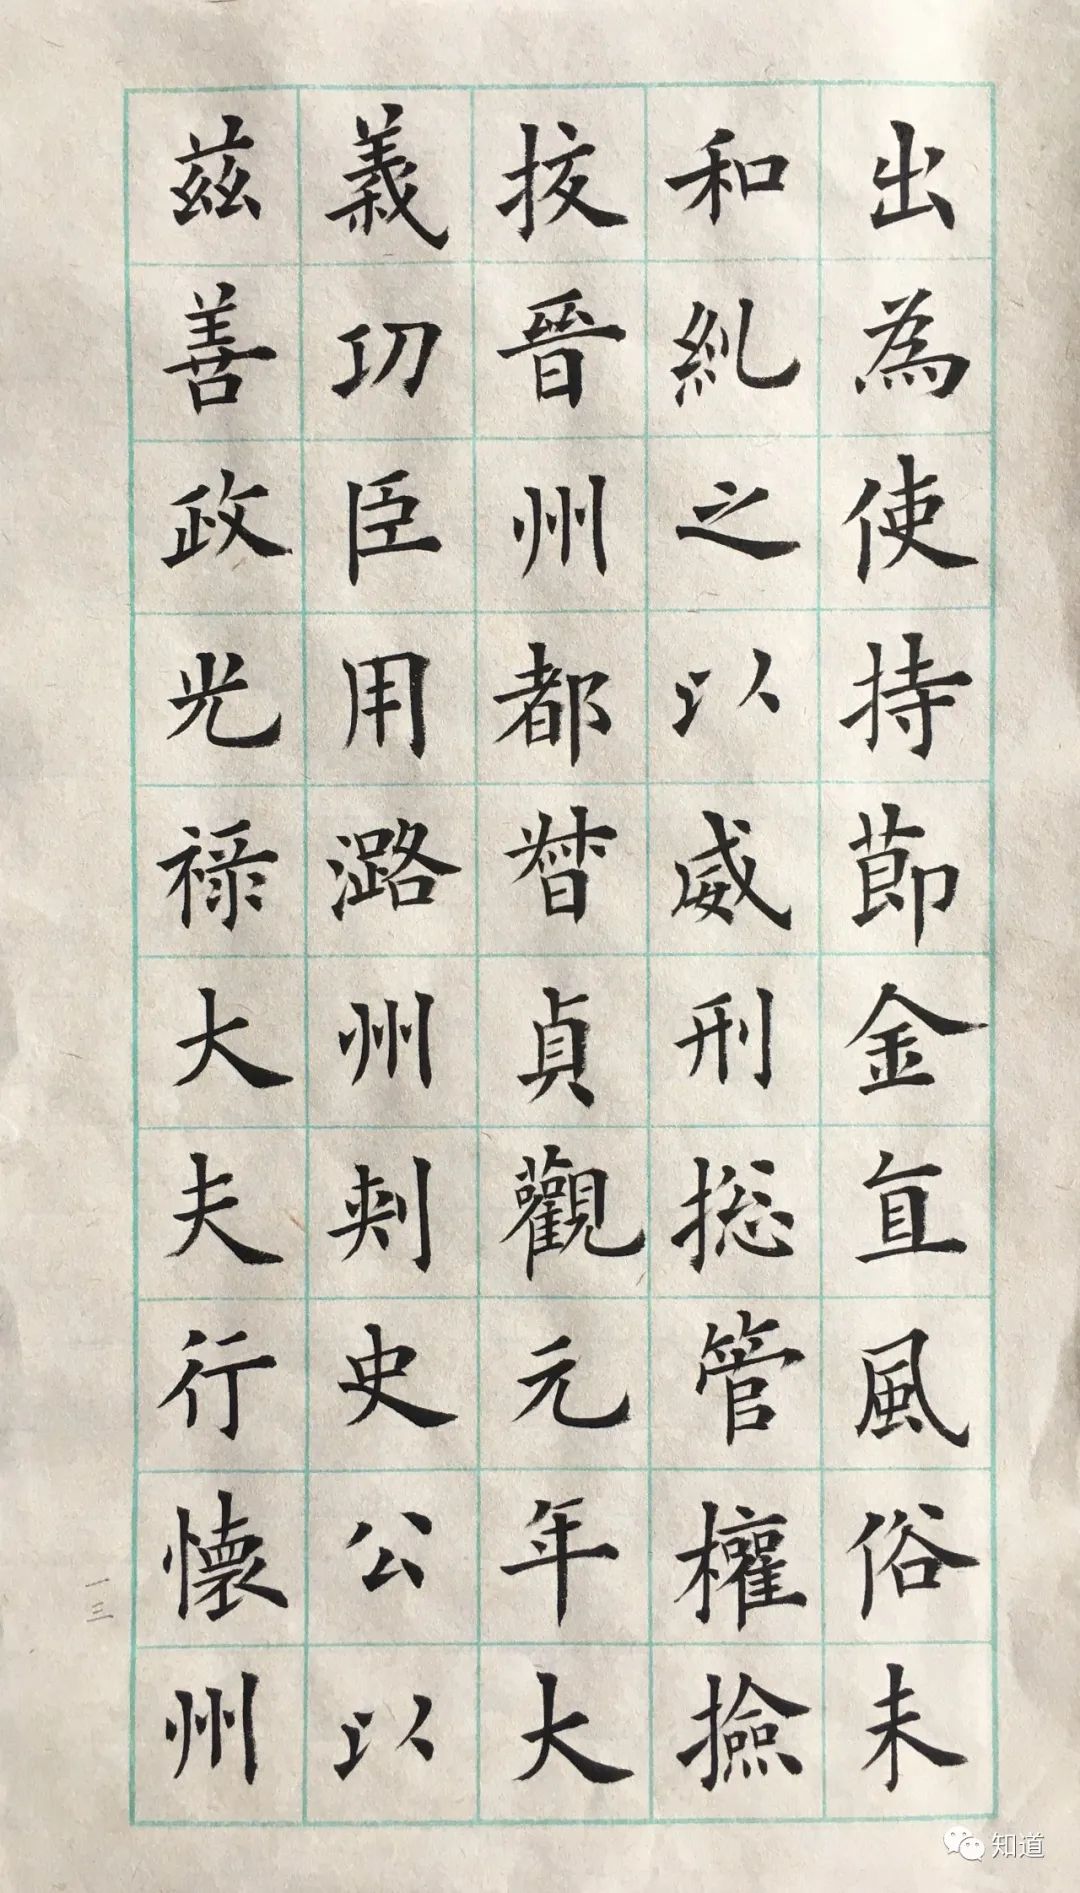 出為使持莭金㐪風俗未
和糺之以威刑捴管權撿
挍晉州都督貞觀元年大
義㓛臣用潞州刾史公以
茲善政光禄大夫行懷州
一三
知道